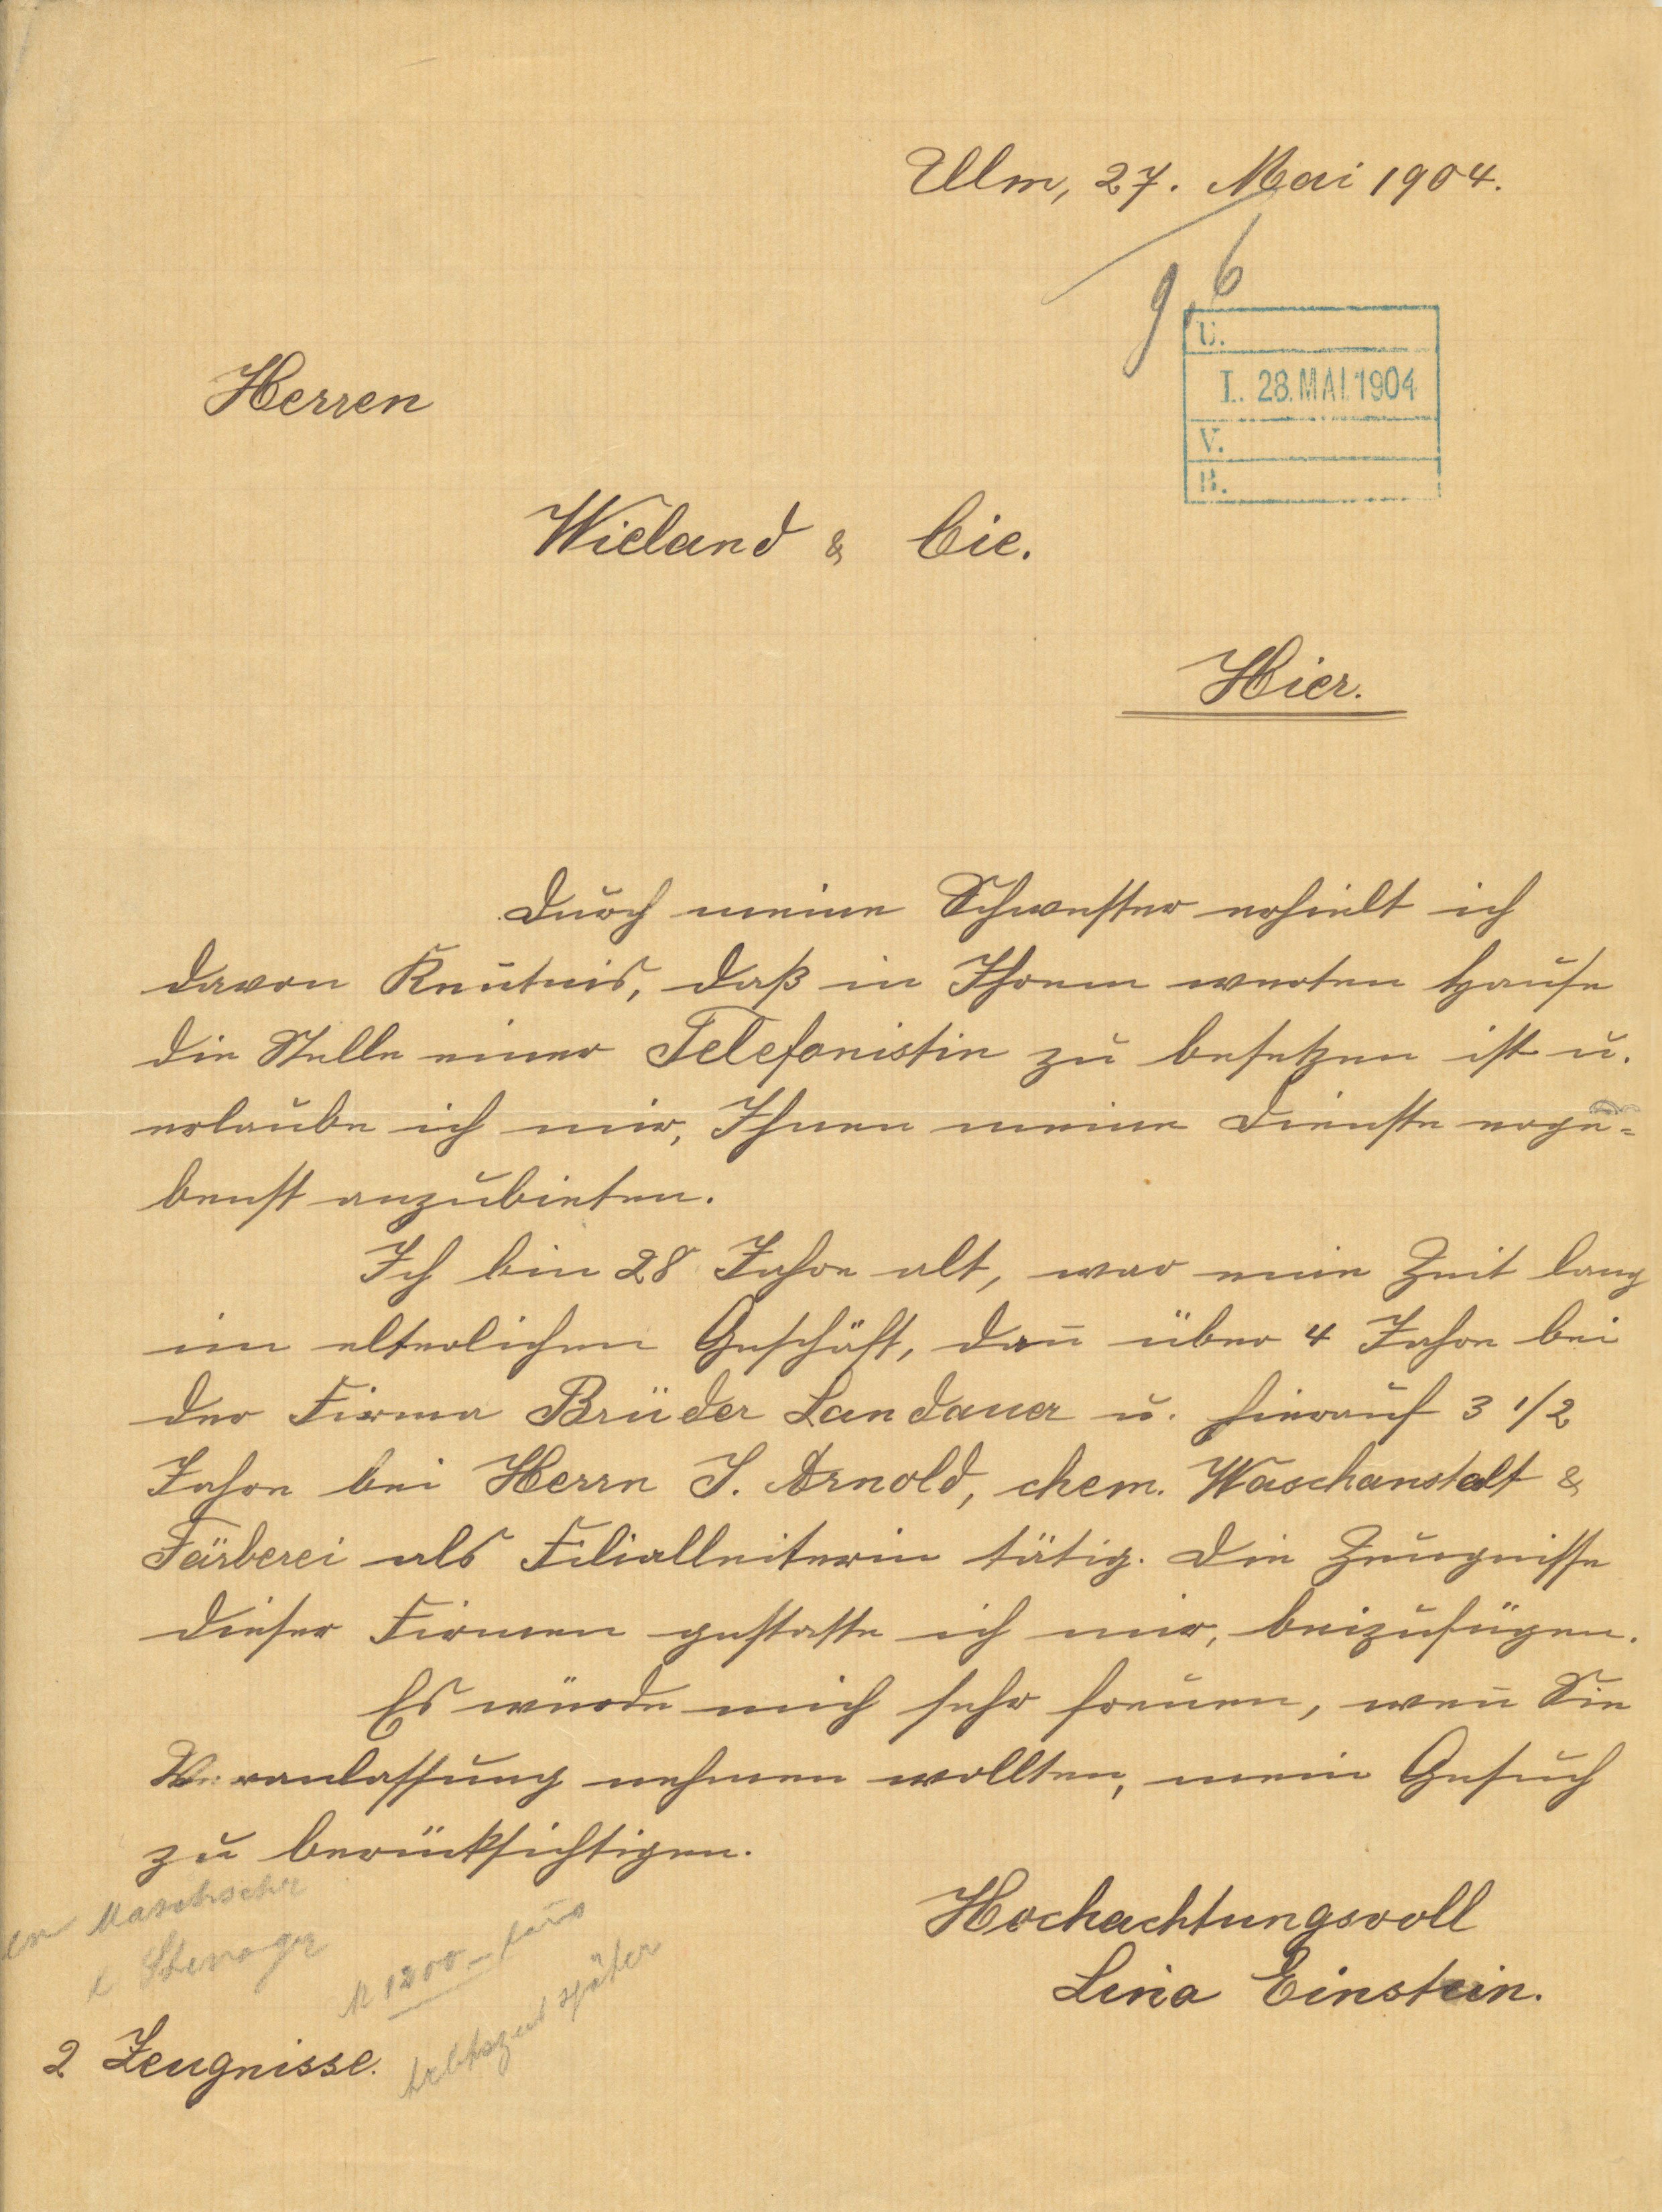 Ulm, 27. Mai 1904.
9,6
U.
I. 28. MAI 1904
V.
B.
Herren
Wieland & Cie.
Hier.
Durch meine Schwester erhielt ich
davon Ken̄tnis, daß in Ihrem werten Hause
die Stelle einer Telefonistin zu besetzen ist u.
erlaube ich mir, Ihnen meine Dienste erge-
benst anzubieten.
Ich bin 28 Jahre alt, war eine Zeit lang
im elterlichen Geschäft, dan̄ über 4 Jahre bei
der Firma Brüder Landauer u. hierauf 3 1/2
Jahre bei Herrn J. Arnold, chem. Waschanstalt &
Färberei als Filialleiterin tätig. Die Zeugnisse
dieser Firmen gestatte ich mir, beizufügen.
Es würde mich sehr freuen, wen̄ Sie
Veranlassung nehmen wollten, mein Gesuch
zu berücksichtigen.
Hochachtungsvoll
Lina Einstein.
Maschschr
Stenogr
M 1200.–
später
2 Zeugnisse.